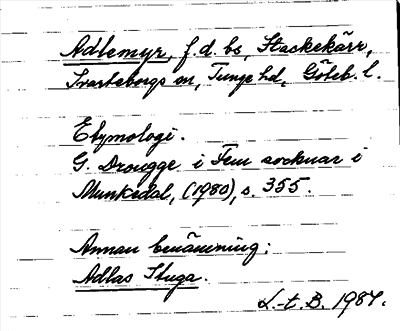 Adlemyr, f.d. bs, Stackekärr,
Svarteborgs sn, Tunge hd, Göteb. l.
Etymologi.
G. Drougge i Fem socknar i
Munkedal, (1980), s. 355.
Annan benämning:
Adlas Stuga.
L.-t. B. 1987.